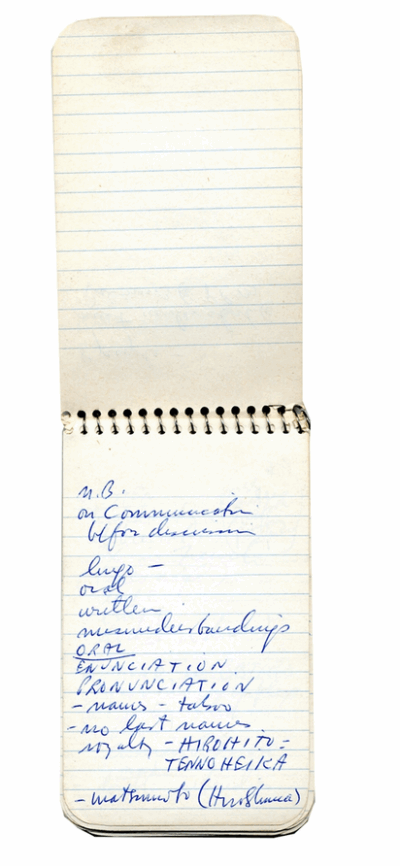 N.B.
on Communication
before discussion
lingo -
oral
written
misunderstandings
ORAL
ENUNCIATION
PRONUNCIATION
- names - taboo
- no last names
royalty - HIROHITO =
TENNO HEIKA
- Matsumoto (Hiroshima)